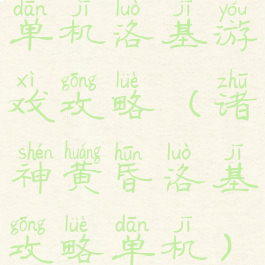 dān jī luò jī yóu
单机洛基游
xì gōng lüè zhū
戏攻略（诸
shén huáng hūn luò jī
神黄昏洛基
gōng lüè dān jī
攻略单机）